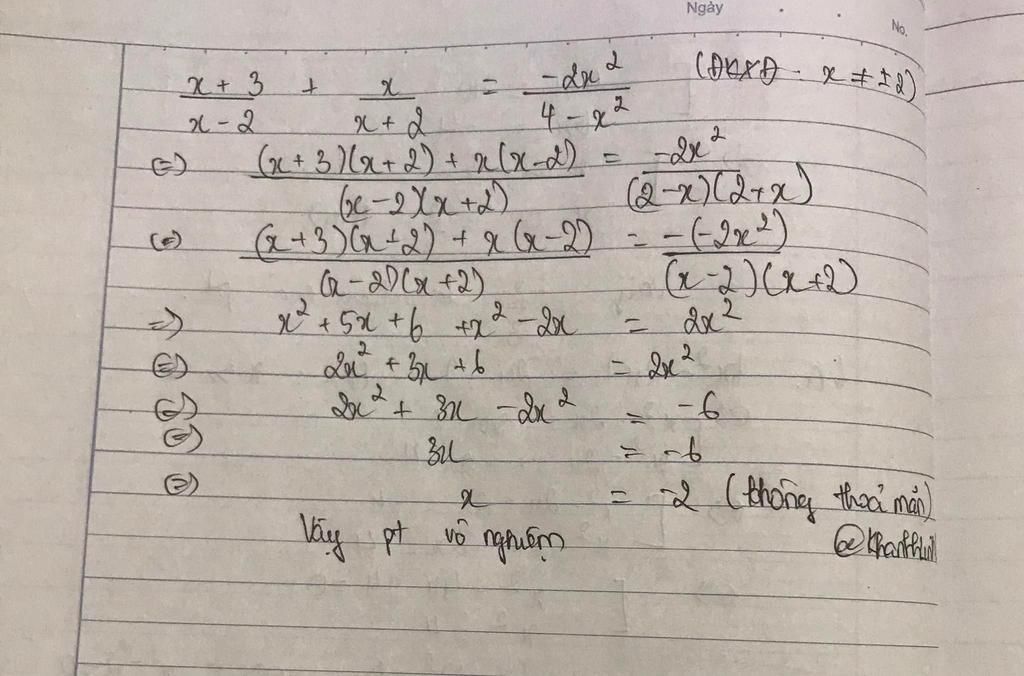 Ngày
No.
x + 3 / x - 2 + x / x + 2 = -2x² / 4 - x² (ĐKXĐ - x ≠ ±2)
(=) (x + 3)(x + 2) + x(x - 2) / (x - 2)(x + 2) = -2x² / (2 - x)(2 + x)
(=) (x + 3)(x + 2) + x(x - 2) / (x - 2)(x + 2) = -(-2x²) / (x - 2)(x + 2)
=) x² + 5x + 6 + x² - 2x = 2x²
(=) 2x² + 3x + 6 = 2x²
(=) 2x² + 3x - 2x² = -6
(=) 3x = -6
(=) x = -2 (không thoả mãn)
Vậy pt vô nghiệm